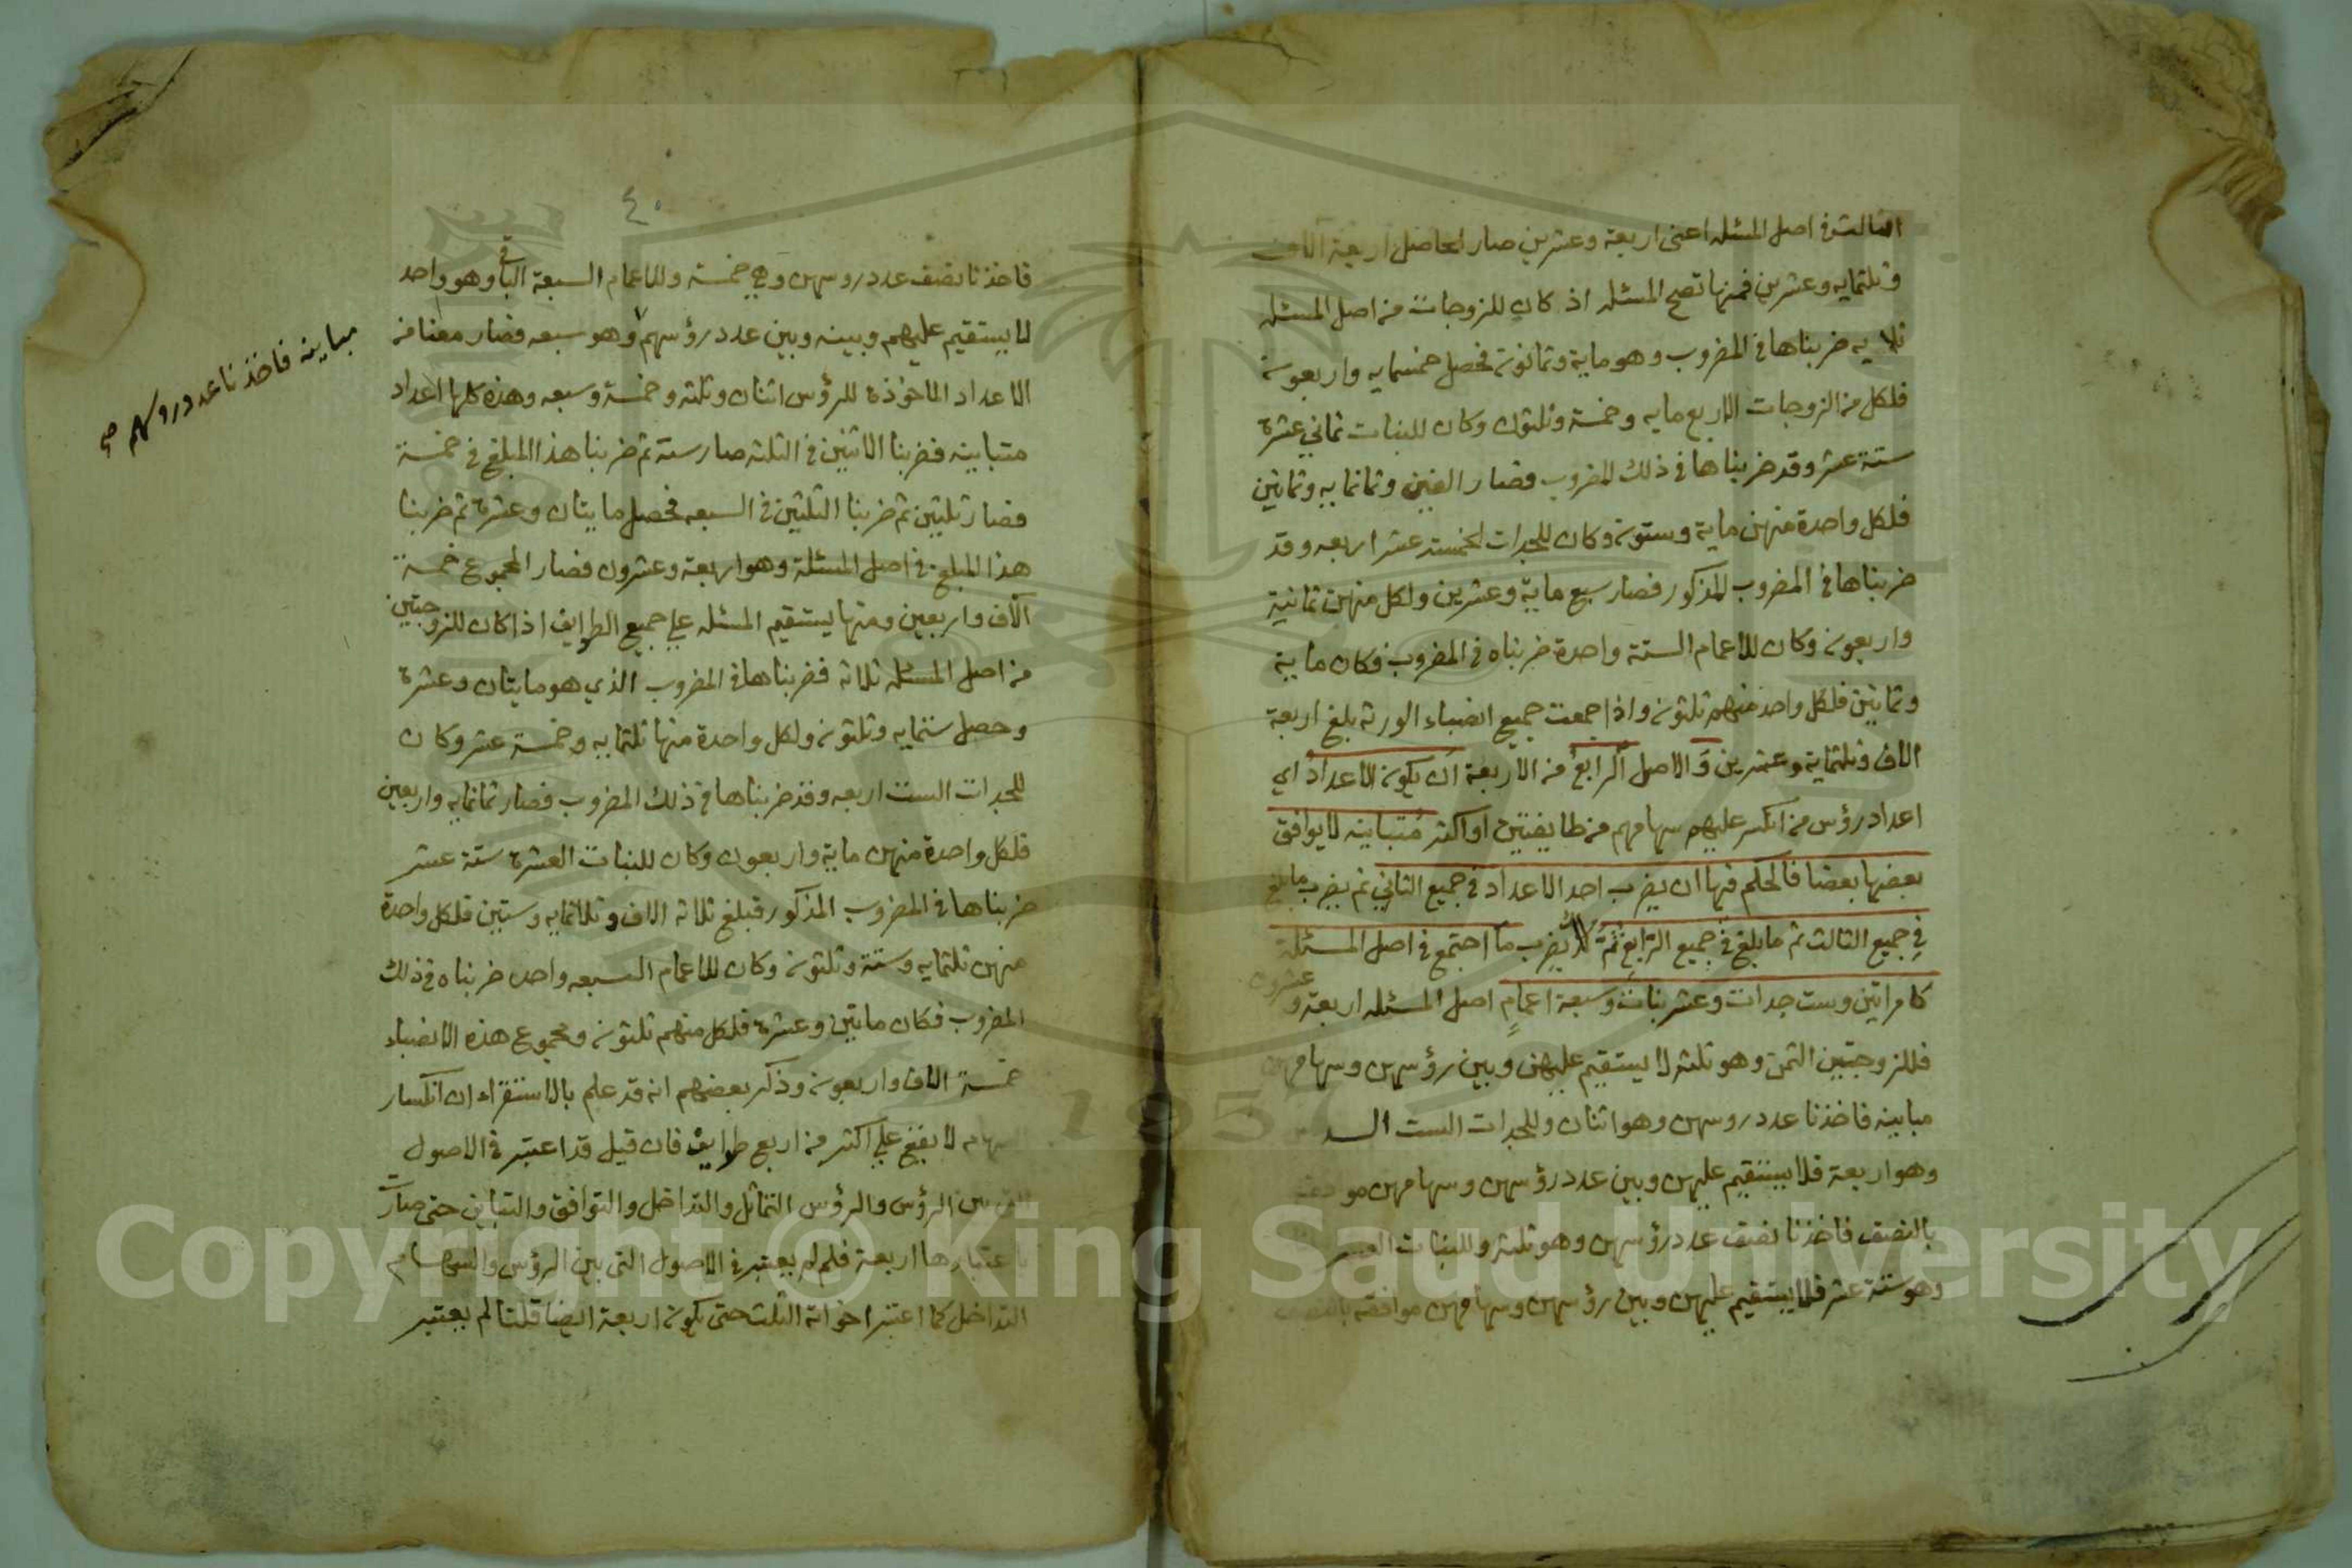 الثالث في اصل المسئله اعني اربعة وعشرين صار الحاصل اربعة آلاف
وثلثمايه وعشرين فمنها تصح المسئله اذ كان للزوجات من اصل المسئله
ثلاثه ضربناها في المضروب وهو ماية وثمانون فحصل خمسمايه واربعون
فلكل من الزوجات الاربع مايه وخمسة وثلثون وكان للبنات ثماني عشرة
ستة عشر وقد ضربناها في ذلك المضروب فصار الفين وثمانمايه وثمانين
فلكل واحدة منهن ماية وستون وكان للجدات الخمسة عشر اربعه وقد
ضربناها في المضروب المذكور فصار سبع ماية وعشرين ولكل منهن ثمانية
واربعون وكان للاعمام الستة واحدة ضربناه في المضروب فكان ماية
وثمانين فلكل واحد منهم ثلثون واذا جمعت جميع انصباء الورثة بلغ اربعة
الاف وثلثماية وعشرين و الاصل الرابع من الاربعة ان يكون الاعداد اي
اعداد رؤس من انكسر عليهم سهامهم من طايفتين او اكثر متباينه لا يوافق
بعضها بعضا فالحكم فيها ان يضرب احد الاعداد في جميع الثاني ثم يضرب ما بلغ
في جميع الثالث ثم ما بلغ في جميع الرابع ثم يضرب ما اجتمع في اصل المسئلة
كامراتين وست جدات وعشر بنات وسبعة اعمام اصل المسئله اربعة وعشرون
فللزوجتين الثمن وهو ثلثه لا يستقيم عليهن وبين رؤسهن وسهامهن
مباينه فاخذنا عدد روسهن وهو اثنان وللجدات الست السد
وهو اربعة فلا يستقيم عليهن وبين عدد رؤسهن وسهامهن موافقة
بالنصف فاخذنا نصف عدد رؤسهن وهو ثلثه وللبنات العشر
وهو ستة عشر فلا يستقيم عليهن وبين رؤسهن وسهامهن موافقه بالنصف
٤٠
فاخذنا نصف عدد روسهن وهي خمسة وللاعمام السبعة الباقي وهو واحد
لا يستقيم عليهم وبينه وبين عدد رؤسهم وهو سبعه فصار معنا من
الاعداد الماخوذة للرؤس اثنان وثلثه وخمسة وسبعه وهذه كلها اعداد
متباينه فضربنا الاثنين في الثلثه صار ستة ثم ضربنا هذا المبلغ في خمسة
فصار ثلثين ثم ضربنا الثلثين في السبعه فحصل مايتان وعشرة ثم ضربنا
هذا المبلغ في اصل المسئلة وهو اربعة وعشرون فصار المجموع خمسة
آلاف واربعين ومنها يستقيم المسئله علي جميع الطوايف اذا كان للزوجتين
من اصل المسئله ثلاثه فضربناها في المضروب الذي هو مايتان وعشرة
وحصل ستمايه وثلثون ولكل واحدة منها ثلثمايه وخمسة عشر وكان
للجدات الست اربعه وقد ضربناها في ذلك المضروب فصار ثمانمايه واربعين
فلكل واحدة منهن ماية واربعون وكان للبنات العشرة ستة عشر
ضربناها في المضروب المذكور فبلغ ثلاثه الاف وثلاثمايه وستين فلكل واحدة
منهن ثلثمايه وستة وثلثون وكان للاعمام السبعه واحد ضربناه في ذلك
المضروب فكان مايتين وعشرة فلكل منهم ثلثون ومجموع هذه الانصباء
خمسة الاف واربعون وذكر بعضهم انه قد علم بالاستقراء ان انكسار
السهام لا يقع علي اكثر من اربع طوايف فان قيل قد اعتبر في الاصول
التي بين الرؤس والرؤس التماثل والتداخل والتوافق والتباين حتى صارت
باعتبارها اربعة فلم لم يعتبر في الاصول التي بين الرؤس والسهام
التداخل كما اعتبر اخواته الثلث حتى يكون اربعة ايضا قلنا لم يعتبر
مباينه فاخذنا عدد روسهم صح
Copyright © King Saud University
1957